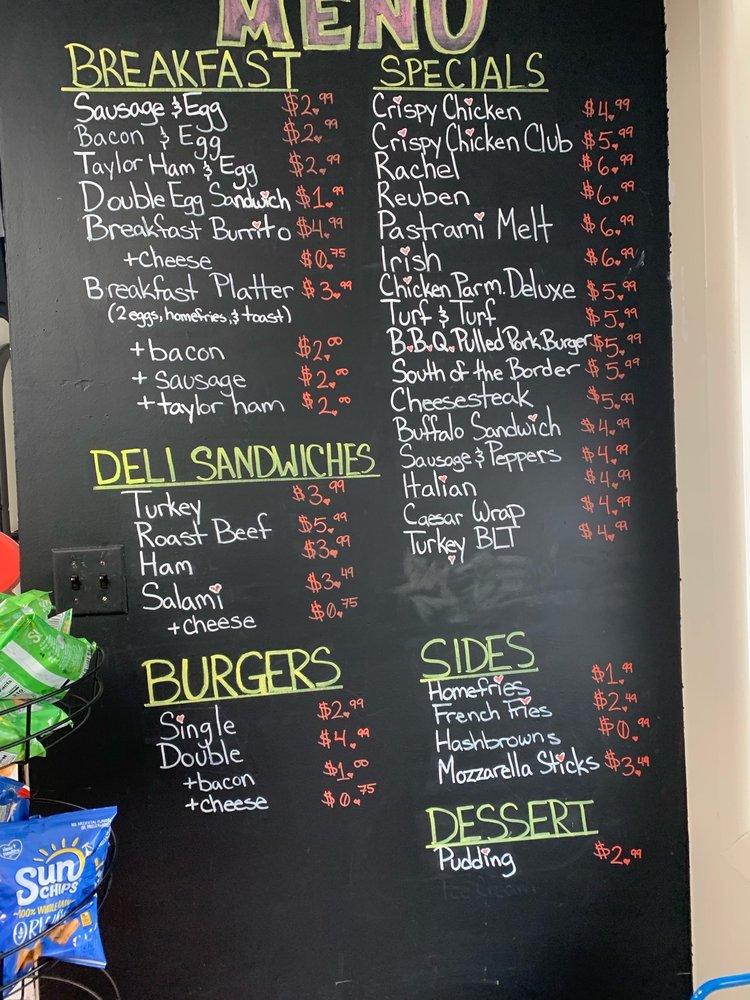 MENU
BREAKFAST
Sausage & Egg $2.99
Bacon & Egg $2.99
Taylor Ham & Egg $2.99
Double Egg Sandwich $1.99
Breakfast Burrito $4.99
+cheese $0.75
Breakfast Platter $3.99
(2 eggs, homefries, & toast)
+bacon $2.00
+sausage $2.00
+taylor ham $2.00
DELI SANDWICHES
Turkey $3.99
Roast Beef $5.99
Ham $3.99
Salami $3.49
+cheese $0.75
BURGERS
Single $2.99
Double $4.99
+bacon $1.00
+cheese $0.75
SPECIALS
Crispy Chicken $4.99
Crispy Chicken Club $5.99
Rachel $6.99
Reuben $6.99
Pastrami Melt $6.99
Irish $6.99
Chicken Parm. Deluxe $5.99
Turf & Turf $5.99
B.B.Q. Pulled Pork Burger $5.99
South of the Border $5.99
Cheesesteak $5.99
Buffalo Sandwich $4.99
Sausage & Peppers $4.99
Italian $4.99
Caesar Wrap $4.99
Turkey BLT $4.99
SIDES
Homefries $1.99
French Fries $2.49
Hashbrowns $0.99
Mozzarella Sticks $3.49
DESSERT
Pudding $2.99
Sun
CHIPS
100% WHOLE GRAIN